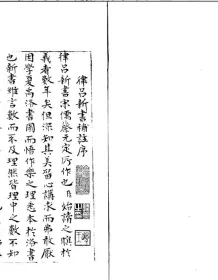 律呂新書補註序
律呂新書宋儒蔡元定所作也始讀之於
義者數年矣但深知其美留心講求而弗敢厭
因學夏洛書圖而悟作樂之理悉本於洛書
也新書雖言數而不及理然皆理中之數不知